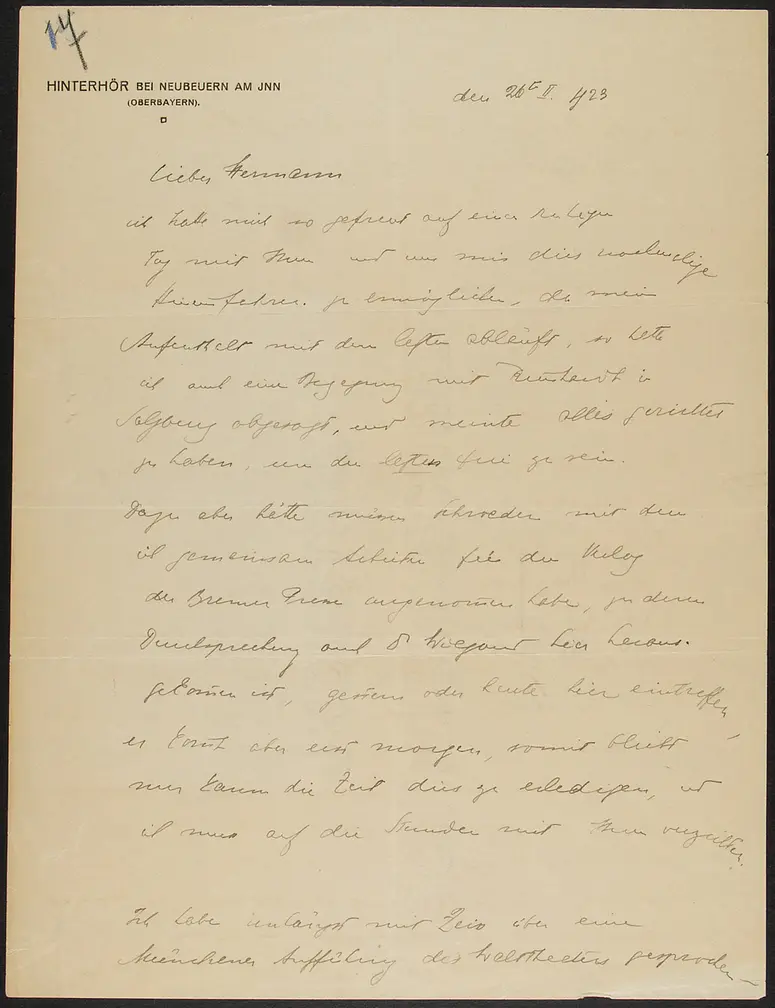 14
HINTERHÖR BEI NEUBEUERN AM JNN
(OBERBAYERN).
den 26ten II. 923
Lieber Hermann
ich hatte mich so gefreut auf einen ruhigen
Tag mit Ihnen und um mir dies
zu ermöglichen, da mein
Aufenthalt mit dem letzten abläuft, so hatte
ich auch eine Begegnung mit Reinhardt in
Salzburg abgesagt, und meinte alles gerichtet
zu haben, um den letzten frei zu sein.
Dazu aber hätte müssen Schroeder mit dem
ich gemeinsam Arbeiten für den Verlag
der Bremer Presse angenommen habe, zu deren
Durchsprechung auch Dr Wiegand hier heraus-
gekommen ist, gestern oder heute hier eintreffen,
er kommt aber erst morgen, somit bleibt
nur kaum die Zeit dies zu erledigen, und
ich muss auf die Stunden mit Ihnen verzichten.
Ich habe unlängst mit Zeiss über eine
Münchener Aufführung des Welttheaters gesprochen